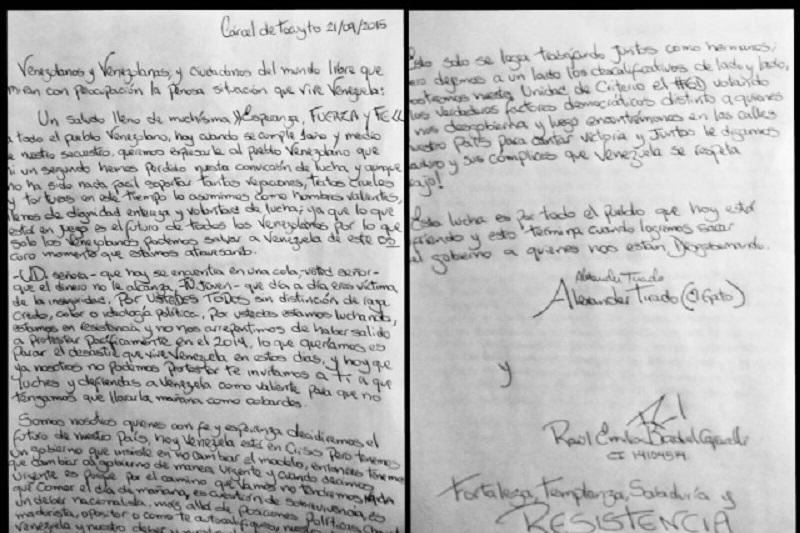 Cárcel de Tocuyito 21/09/2015
Venezolanos y Venezolanas, y ciudadanos del mundo libre que
miran con preocupación la penosa situación que vive Venezuela:
Un saludo lleno de muchísima Esperanza, FUERZA y FE
a todo el pueblo Venezolano, hoy cuando se cumple 1 año y medio
de nuestro secuestro, queremos expresarle al pueblo Venezolano que
ni un segundo hemos perdido nuestra convicción de lucha y aunque
no ha sido nada facil soportar tantas vejaciones, tratos crueles
y torturas en este tiempo lo asumimos como hombres valientes,
llenos de dignidad entereza y voluntad de lucha; ya que lo que
está en juego es el futuro de todos los Venezolanos por lo que
solo los Venezolanos podemos salvar a Venezuela de este os
curo momento que estamos atravesando.
-UD señora- que hoy se encuentra en una cola, -usted señor-
que el dinero no le alcanza, -Tu Joven- que día a día eres víctima
de la inseguridad, Por USTEDES TODOS sin distinción de raza
credo, color o ideología política, Por ustedes estamos luchando,
estamos en resistencia y no nos arrepentimos de haber salido
a Protestar Pacíficamente en el 2014, lo que queríamos es
Parar el desastre que vive Venezuela en estos días, y hoy que
ya nosotros no podemos Protestar te invitamos a Ti a que
luches y defiendas a Venezuela como valiente para que no
tengamos que llorarla mañana como cobardes.
Somos nosotros quienes con fe y esperanza decidiremos el
futuro de nuestro País, hoy Venezuela está en Crisis Pero tenemos
un gobierno que insiste en no cambiar el modelo, entonces tenemos
que cambiar al gobierno de manera Urgente y cuando decimos
Urgente es porque por el camino que vamos no tendremos NADA
que comer el día de mañana, es cuestión de sobrevivencia, es
un deber nacionalista, más allá de posiciones Políticas,
madurista, opositor o como te autocalifiques,
Venezuela y nuestro deber y
Esto solo se logra trabajando Juntos como hermanos,
dejemos a un lado los descalificativos de lado y lado,
nuestra Unidad de Criterio el #6D votando
los verdaderos factores democráticos distinto a quienes
nos desgobierna y luego encontrarnos en las calles
nuestro País para cantar victoria y Juntos le digamos
y sus cómplices que Venezuela se respeta
Esta lucha es por todo el Pueblo que hoy está
sufriendo y esto termina cuando logremos sacar
al gobierno a quienes nos están Desgobernando.
Alexander Tirado
Alexander Tirado (El Gato)
y
Raúl Emilio Baduel
CI
Fortaleza, Templanza, Sabiduría y
RESISTENCIA